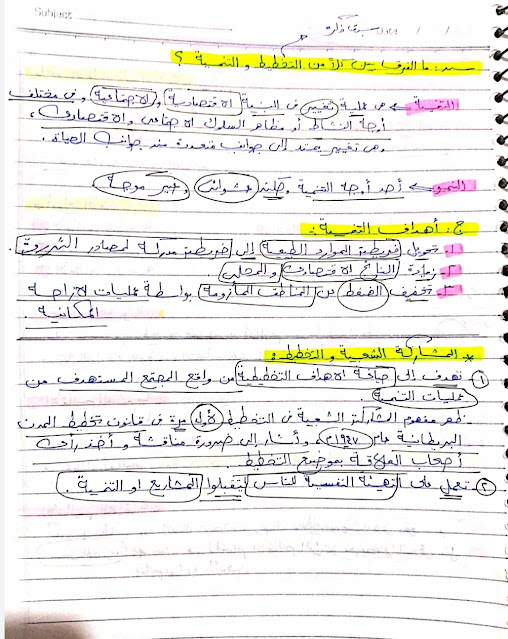 Subject
Date / /
سبق ذكره
س: ما الفرق بين كلاً من التخطيط و التنمية ؟
التنمية > هي عملية تغيير في البنية الاقتصادية والاجتماعية وفي مختلف
أوجة النشاط أو مظاهر السلوك الاجتماعي والاقتصادي،
وهي تغيير يمتد إلى جوانب متعددة من جوانب الحياة.
النمو > أحد أوجة التنمية ولكنه عشوائي وغير موجة
ج: أهداف التنمية :-
١- تحويل خريطة الموارد الطبيعية إلى خريطة مدركة لمصادر الثروة.
٢- زيادة الناتج الاقتصادي والمحلي.
٣- تخفيف الضغط عن المناطق المأزومة بواسطة عمليات الازاحة
المكانية.
* المشاركة الشعبية و التخطيط :-
١ تهدف إلى صياغة الاهداف التخطيطية من واقع المجتمع المستهدف من
عمليات التنمية.
ظهر مفهوم المشاركة الشعبية في التخطيط لأول مرة في قانون تخطيط المدن
البريطانية عام ١٩٤٧م وأشار إلى ضرورة مناقشة و أخذ رأى
أصحاب العلاقة بموضع التخطيط
٢ تعمل على التهيئة النفسية للناس ليتقبلوا المشاريع او التنمية.